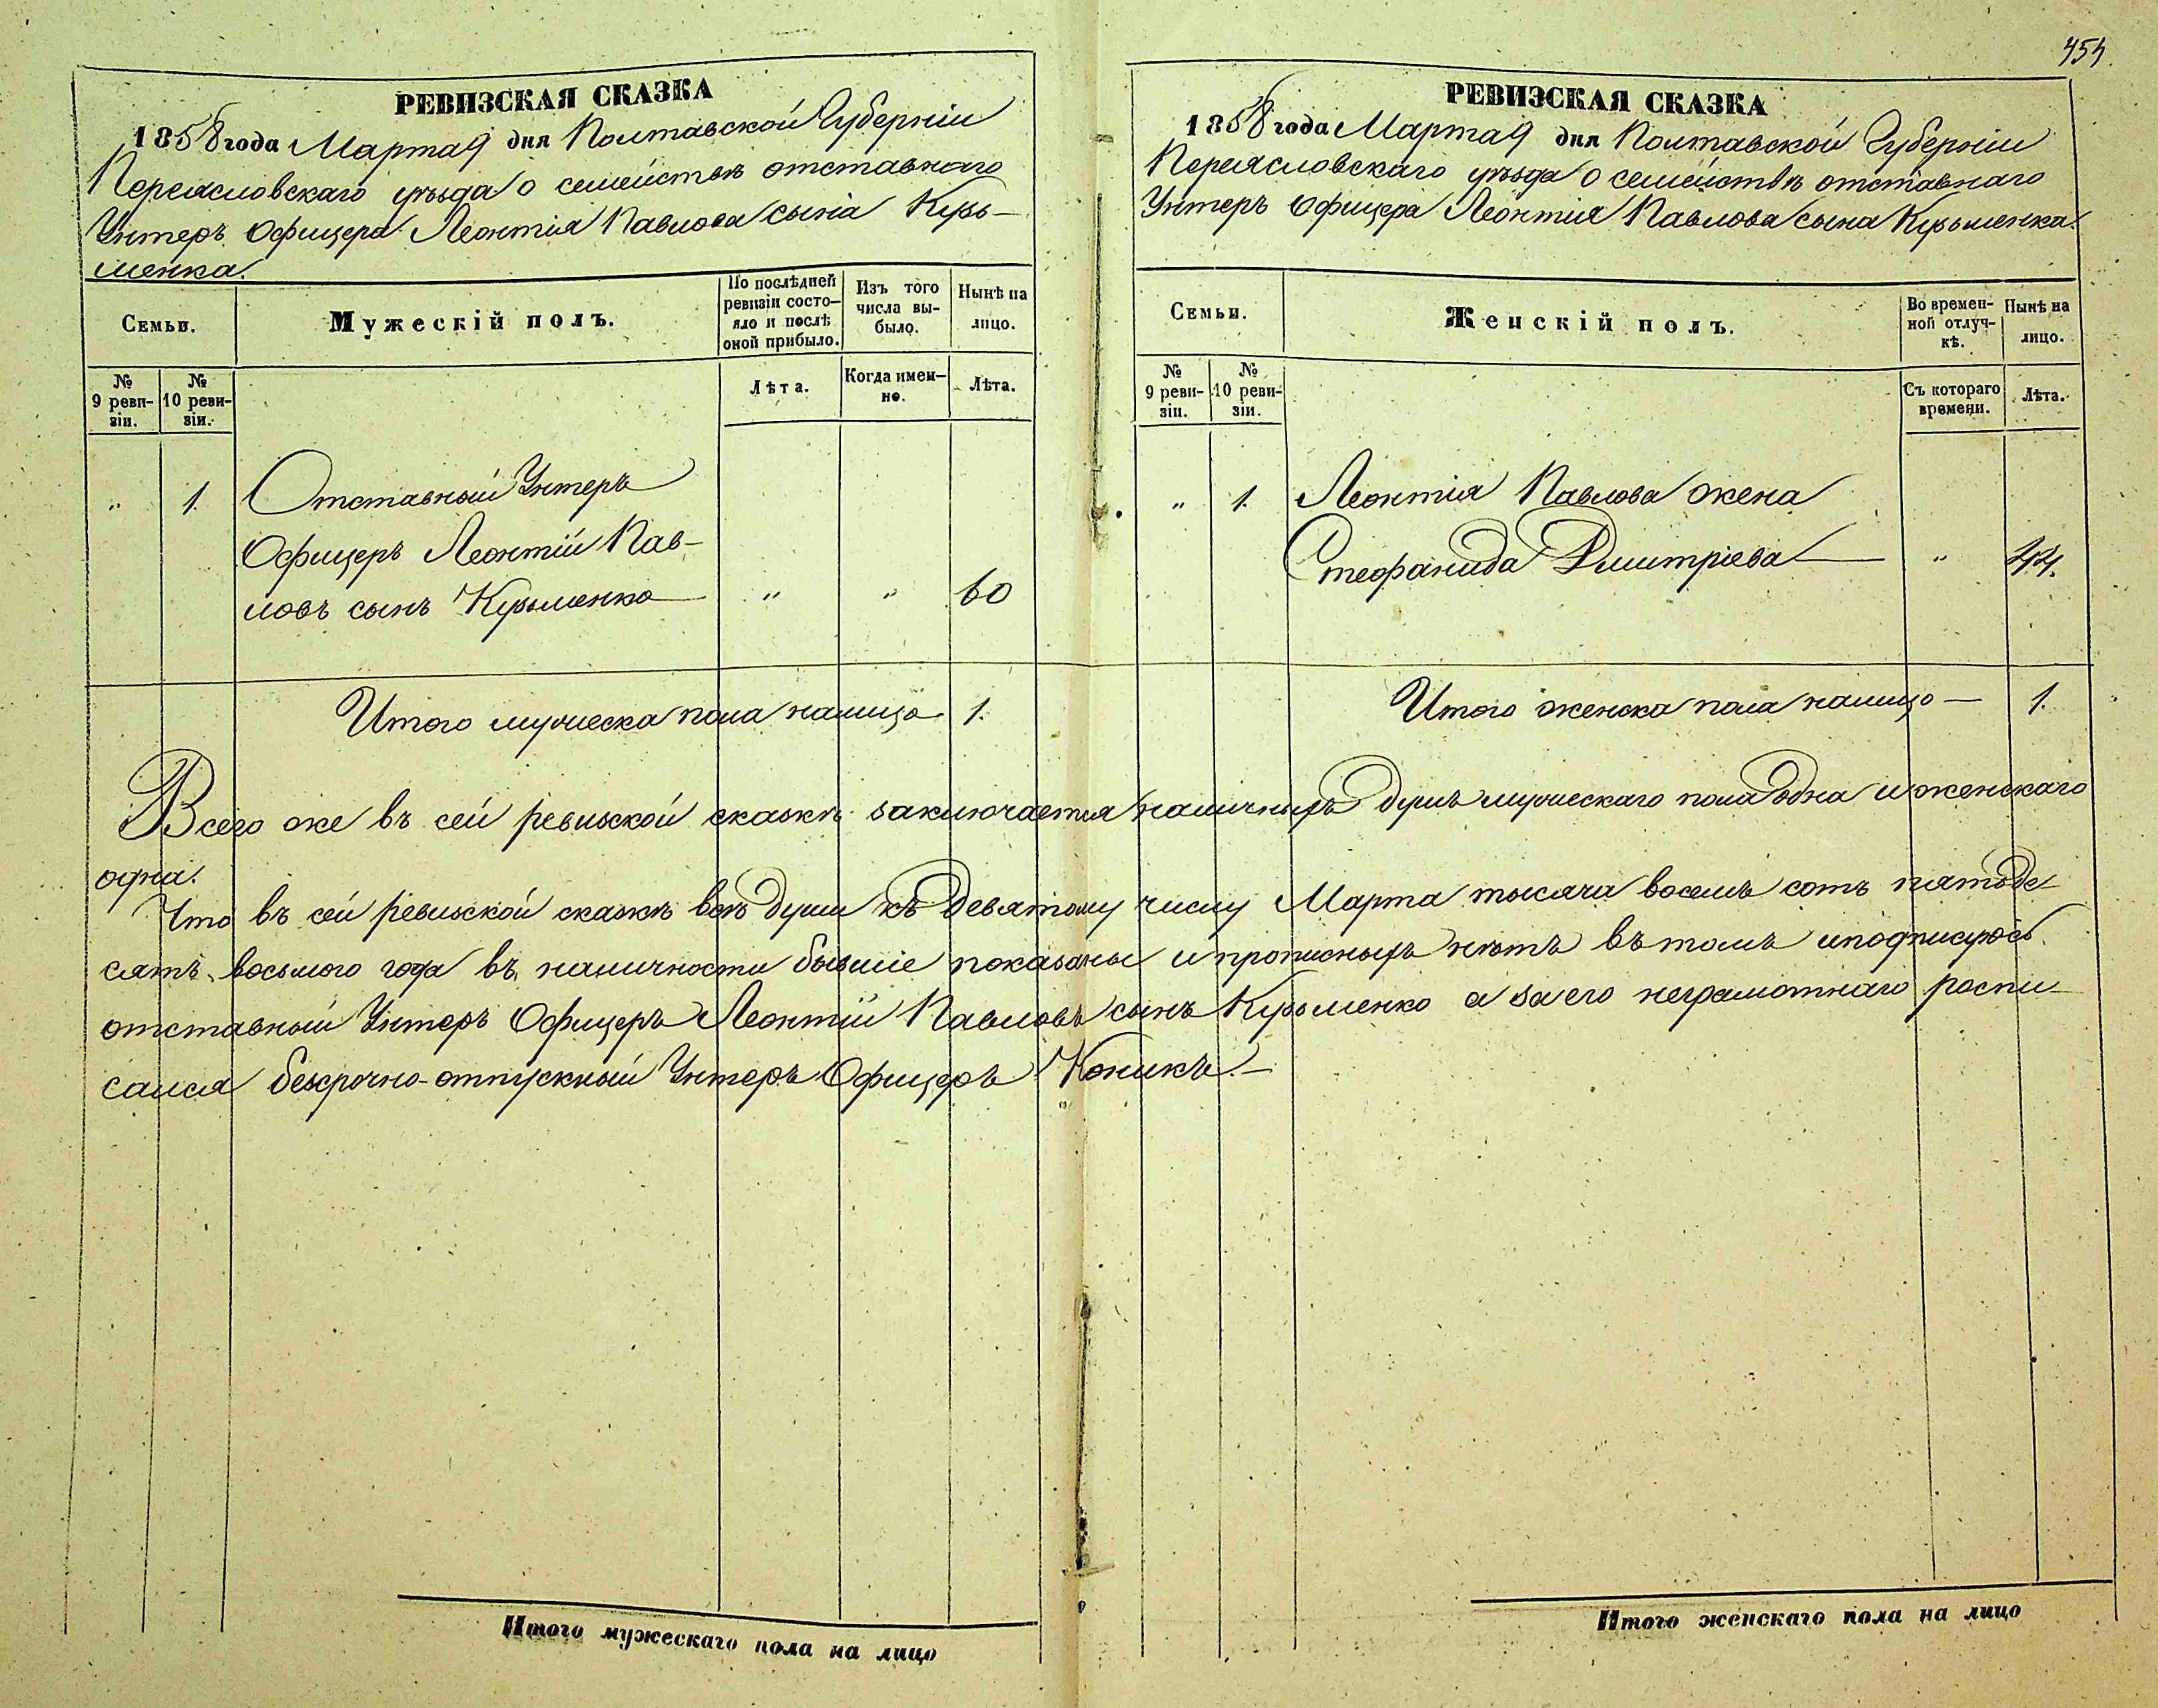 454.
РЕВИЗСКАЯ СКАЗКА
1858 года Марта 9 дня Полтавской Губерніи
Переясловскаго уѣзда о семействѣ отставнаго
Унтеръ Офицера Леонтія Павлова сына Кузь-
менка.
Семьи.
Мужескій полъ.
По послѣдней
ревизіи состо-
яло и послѣ
оной прибыло.
Изъ того
числа вы-
было.
Нынѣ на
лицо.
№
9 реви-
зіи.
№
10 реви-
зіи.
Лѣта.
Когда имен-
но.
Лѣта.
„ 1. Отставный Унтеръ
Офицеръ Леонтій Пав-
ловъ сынъ Кузьменко — „ „ 60
Итого мужеска пола налицо 1.
РЕВИЗСКАЯ СКАЗКА
1858 года Марта 9 дня Полтавской Губерніи
Переясловскаго уѣзда о семействѣ отставнаго
Унтеръ Офицера Леонтія Павлова сына Кузьменка.
Семьи.
Женскій полъ.
Во времен-
ной отлуч-
кѣ.
Нынѣ на
лицо.
№
9 реви-
зіи.
№
10 реви-
зіи.
Съ котораго
времени.
Лѣта.
„ 1. Леонтія Павлова жена
Стефанида Дмитріева — „ 44.
Итого женска пола налицо — 1.
Всего же въ сей ревизской сказкѣ заключается наличныхъ душъ мужескаго пола одна и женскаго
одна.
Что въ сей ревизской сказкѣ всѣ души къ Девятому числу Марта тысяча восемь сотъ пятьде-
сятъ восьмого года въ наличности бывшіе показаны и прописныхъ нѣтъ въ томъ и подписуюсь
отставный Унтеръ Офицеръ Леонтій Павловъ сынъ Кузьменко а за его неграмотнаго роспи-
сался безсрочно-отпускный Унтеръ Офицеръ Коникъ. —
Итого мужескаго пола на лицо
Итого женскаго пола на лицо